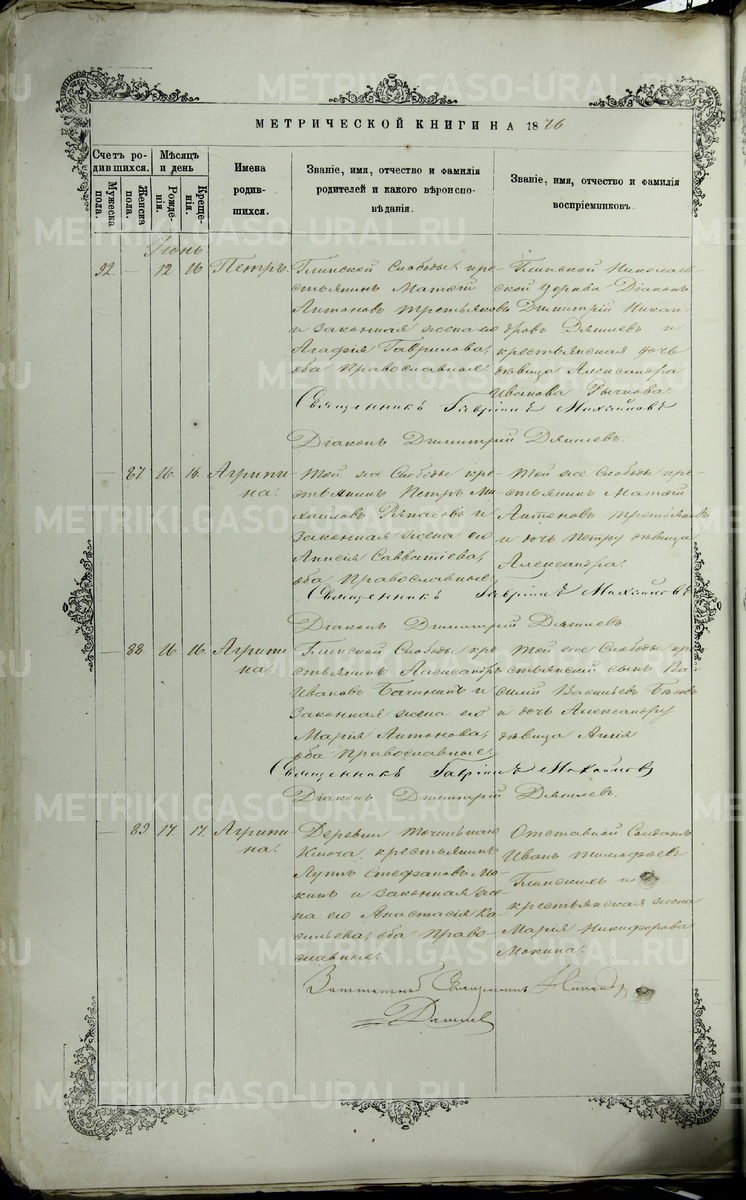 МЕТРИЧЕСКОЙ КНИГИ НА 1876
Счетъ ро-
дившихся.
Мужеска
пола.
Женска
пола.
Мѣсяцъ
и день
Рожде-
нія.
Креще-
нія.
Имена
родив-
шихся.
Званіе, имя, отчество и фамилія
родителей и какого вѣроиспо-
вѣданія.
Званіе, имя, отчество и фамилія
воспріемниковъ.
Іюнь
92. — 12. 16. Петръ.
Глинской Слободы кре-
стьянинъ Матѳій
Антоновъ Третьяковъ
и законная жена его
Агафія Гаврилова,
оба Православные.
Глинской Николаев-
ской церкви Діаконъ
Димитрій Никан-
дровъ и
крестьянская дочь
дѣвица Александра
Иванова
Священникъ Гавріилъ
Діаконъ Димитрій
— 87. 16. 16. Агрипи-
на.
Той же Слободы кре-
стьянинъ Петръ Ми-
хайловъ и
законная жена его
Анисія Савватіева,
оба Православные.
Той же Слободы кре-
стьянинъ Матѳій
Антоновъ Третьяковъ
и дочь Петру дѣвица
Александра.
Священникъ Гавріилъ
Діаконъ Димитрій
— 88. 16. 16. Агрипи-
на.
Глинской Слободы кре-
стьянинъ Александръ
Ивановъ и
законная жена его
Марія Антонова,
оба Православные.
Той же Слободы кре-
стьянской сынъ Ва-
силій Васильевъ
и дочь Александру
дѣвица
Священникъ Гавріилъ
Діаконъ Димитрій
— 89. 17. 17. Агрипи-
на.
Деревни Точильнаго
Ключа, крестьянинъ
Луппъ Стефановъ Мо-
кинъ и законная же-
на его Анастасія Ва-
сильева, оба Право-
славные.
Отставной Солдатъ
Иванъ Тимофѣевъ
Глинскихъ и
крестьянская жена
Марія Никифорова
Мокина.
Священникъ
METRIKI.GASO-URAL.RU